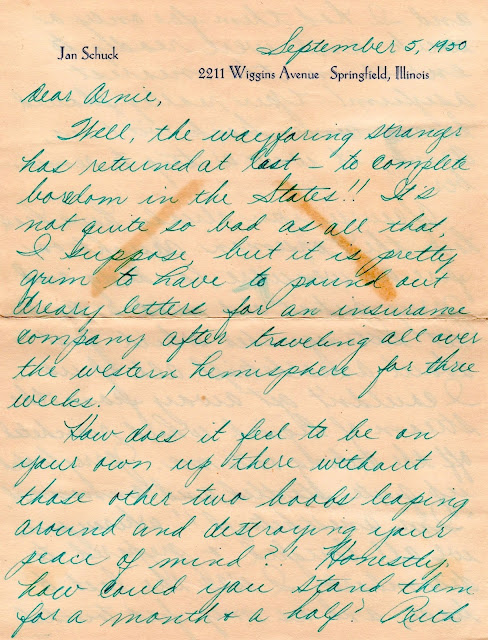 September 5, 1950
Jan Schuck
2211 Wiggins Avenue Springfield, Illinois
Dear Arnie,
Well, the wayfaring stranger
has returned at last - to complete
boredom in the States!! It's
not quite so bad as all that,
I suppose, but it is pretty
grim to have to pound out
dreary letters for an insurance
company after traveling all over
the western hemisphere for three
weeks!
How does it feel to be on
your own up there without
those other two boobs leaping
around and destroying your
peace of mind?! Honestly,
how could you stand them
for a month & a half? Ruth